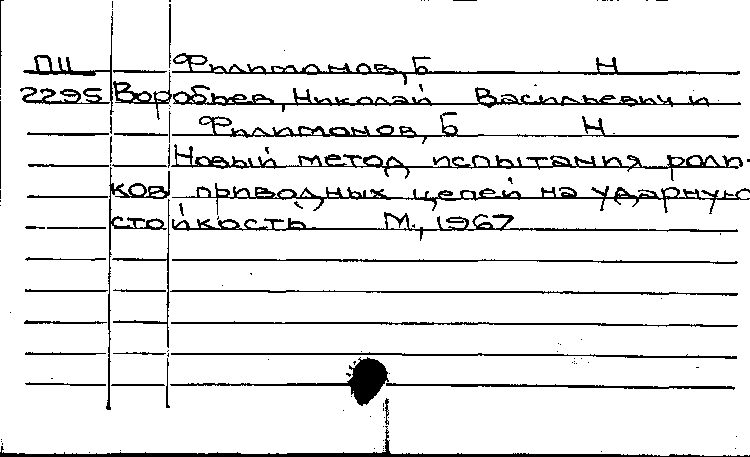 ПЩ Филимонов, Б Н
2295 Воробьев, Николай Васильевич и
Филимонов, Б Н
Новый метод испытания роли-
ков приводных цепей на ударную
стойкость. М., 1967